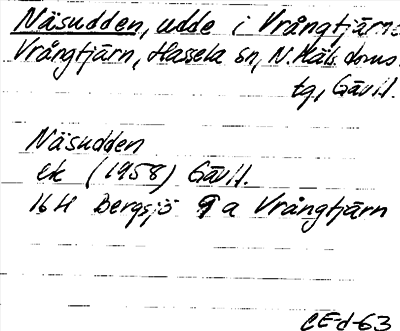 Näsudden, udde i Vrångtjärns
Vrångtjärn, Hassela sn, N. Häls. doms.
tg, Gävl.
Näsudden
ek (1958) Gävl.
16H Bergsjö 9 a Vrångtjärn
CE-d-63